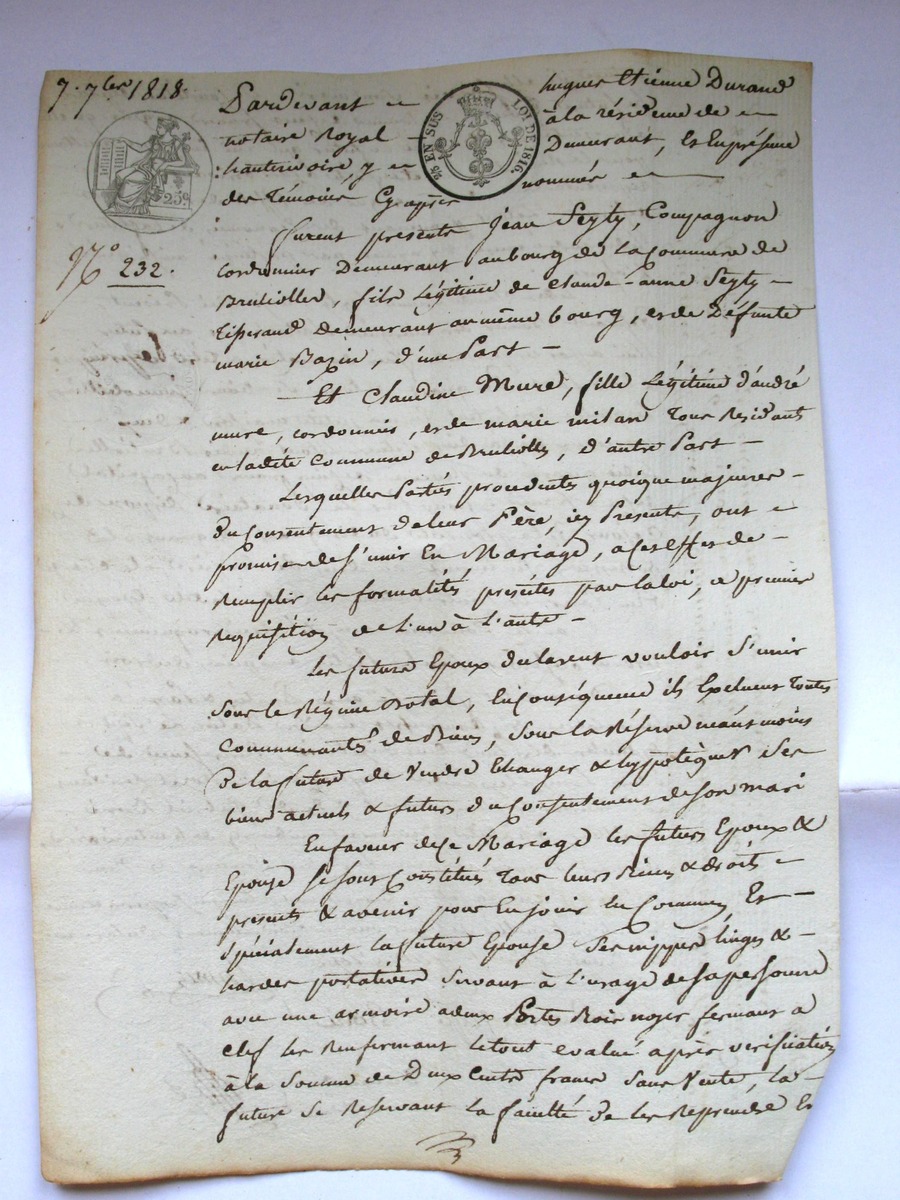 7. 7bre 1818.
Pardevant hugues Etienne Durand
notaire Royal à la résidence de
hauterivoire y Demeurant, Et En présence
des Témoins Cy après nommés
25 EN SUS LOI DE 1816.
25c
N.° 232.
furent présents Jean Seyty, Compagnon
Cordonnier Demeurant au bourg de la Commune de
Brullioles, fils Légitime de Claude-anne Seyty
Tisserand demeurant au même bourg, et de Défunte
marie Bazin, d'une Part
Et Claudine Mure, fille Légitime d'andré
mure, cordonnier, et de marie milan Tous Résidants
en ladite Commune de Brullioles, d'autre Part
Lesquelles Parties procedentes quoique majeures
Du Consentement de leur Père, icy Présents, ont
promis de s'unir En Mariage, a Cet effet de
Remplir les formalités présentes par la loi, a première
Requisition de l'un à l'autre
Les future Epoux declarent vouloir s'unir
sous le Régime Dotal, En Conséquence ils Excluent Toutes
Communautés de Biens, sous la Réserve néansmoins
De la future de Vendre Echanger & hyppotèquer Ses
biens actuels & futurs du Consentement de son mari
En faveur de Ce Mariage les futurs Epoux &
Epouse se sont Constitués Tous leurs Biens & droits
présents & avenir pour En jouir En Commun Et
Spécialement la future Epouse Ses nippes linges &
hardes portatives Servant à L'usage de sa personne
avec une armoire a deux Portes Bois noyer fermant a
Clef les Renfermant le tout evalué après vérification
à la Somme de Deux Cents francs Sans Vente, la
future se Réservant La faculté De les Reprendre En